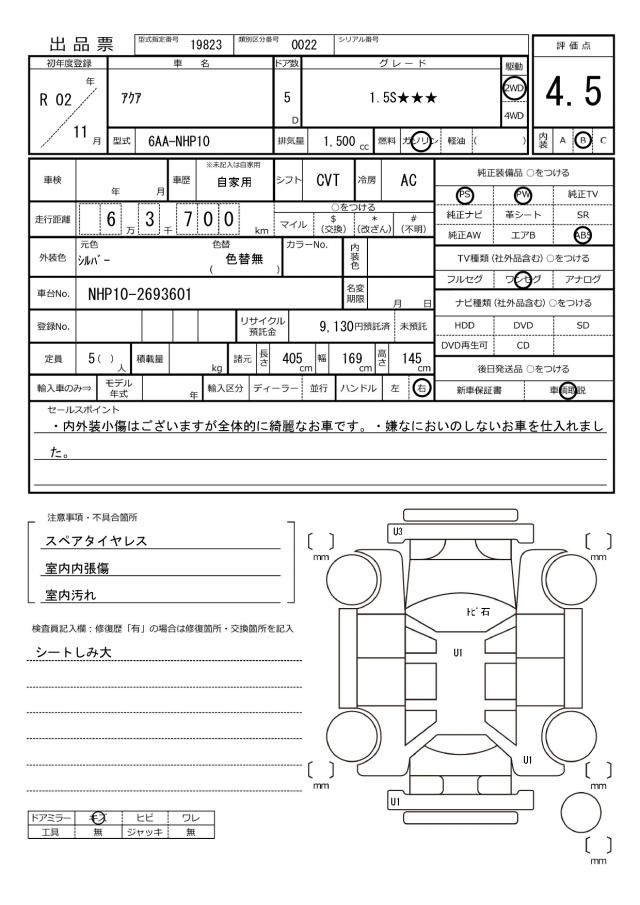 出品票 型式指定番号 19823 類別区分番号 0022 シリアル番号
評価点
4.5
内装 A B C
初年度登録 車名 ドア数 グレード 駆動
R 02 年 11 月
アクア
5 D
1.5S★★★
2WD
4WD
型式 6AA-NHP10 排気量 1,500 cc 燃料 ガソリン 軽油 ( )
車検 年 月 車歴 ※未記入は自家用 自家用 シフト CVT 冷房 AC
走行距離 6 万 3 千 7 0 0 km
○をつける
マイル $ (交換) * (改ざん) # (不明)
外装色 元色 シルバー 色替 ( 色替無 ) カラーNo. 内装色
車台No. NHP10-2693601 名変期限 月 日
登録No. リサイクル預託金 9,130円預託済 未預託
定員 5 ( ) 人 積載量 kg 諸元 長さ 405 cm 幅 169 cm 高さ 145 cm
輸入車のみ⇒ モデル年式 年 輸入区分 ディーラー 並行 ハンドル 左 右
純正装備品 ○をつける
PS PW 純正TV
純正ナビ 革シート SR
純正AW エアB ABS
TV種類 (社外品含む) ○をつける
フルセグ ワンセグ アナログ
ナビ種類 (社外品含む) ○をつける
HDD DVD SD
DVD再生可 CD
後日発送品 ○をつける
新車保証書 車輌取説
セールスポイント
・内外装小傷はございますが全体的に綺麗なお車です。・嫌なにおいのしないお車を仕入れまし
た。
注意事項・不具合箇所
スペアタイヤレス
室内内張傷
室内汚れ
検査員記入欄：修復歴「有」の場合は修復箇所・交換箇所を記入
シートしみ大
ドアミラー キズ ヒビ ワレ
工具 無 ジャッキ 無
U3
トビ石
U1
U1
U1
mm
mm
mm
mm
mm